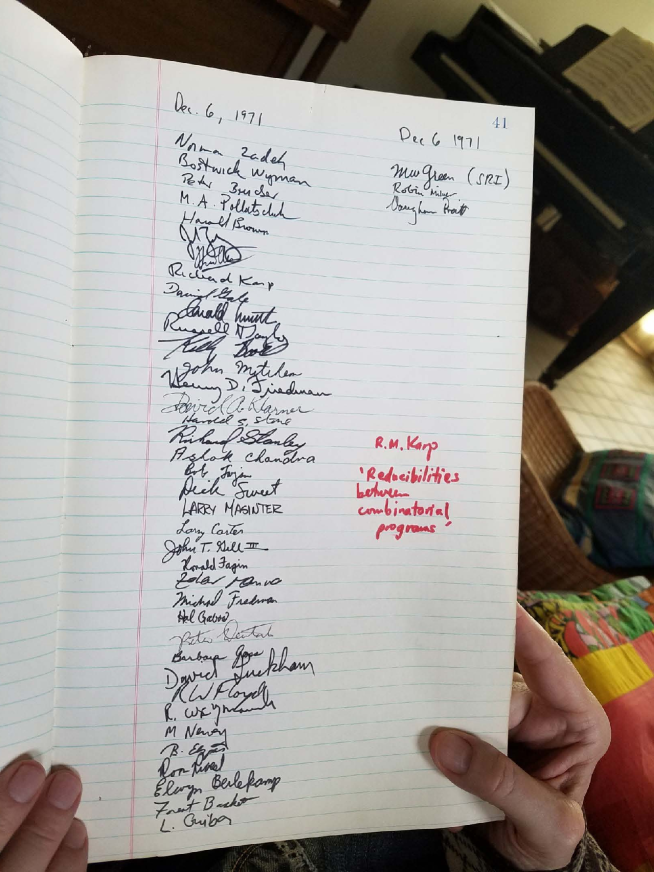 Dec. 6, 1971
Norma Zadeh
Bostwick Wyman
Peter
M. A. Pollatschek
Harold Brown
Richard Karp
David Gale
Russell
John
Kenny D. Friedman
David A. Klarner
Harold S. Stone
Richard Stanley
Ashok Chandra
Bob
Dick Sweet
LARRY MASINTER
Larry Carter
John T. Gill III
Ronald Fagin
Zohar Manna
Michael Fredman
Hal Gabow
Peter
Barbara
David Luckham
R W Floyd
R.
M Newey
B.
Ron Rivest
Elwyn Berlekamp
Forest Baskett
L. Guibas
41
Dec 6 1971
MW Green (SRI)
Robin Milner
Vaughan Pratt
R.M. Karp
'Reducibilities
between
combinatorial
programs'